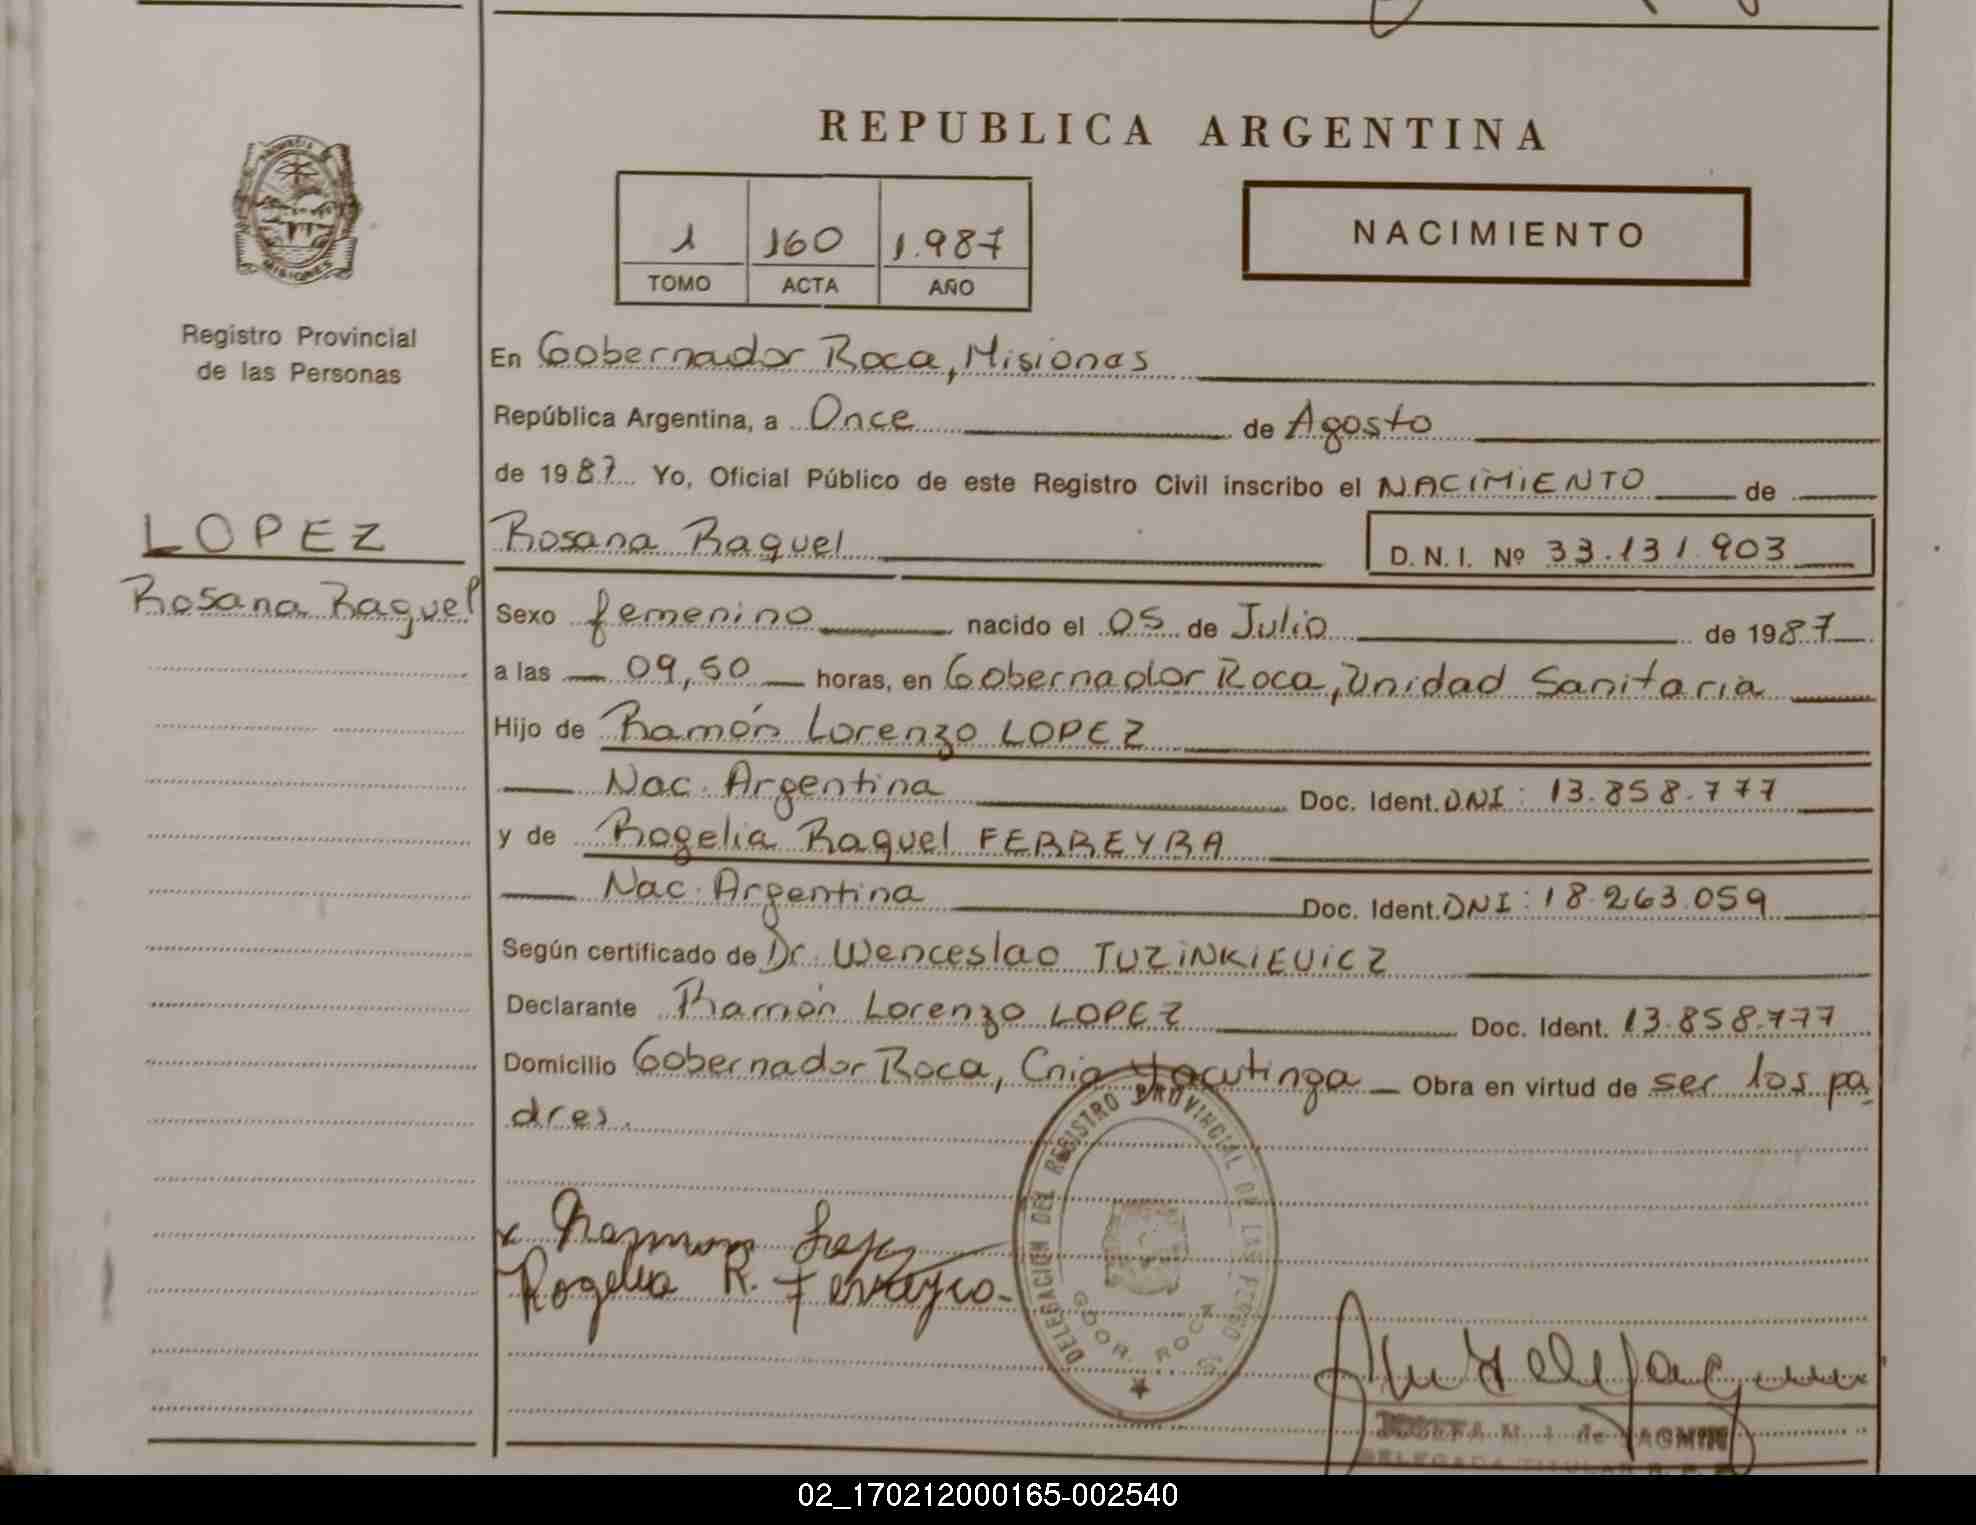 REPUBLICA ARGENTINA
PROVINCIA DE
MISIONES
Registro Provincial
de las Personas
1 160 1.987
TOMO ACTA AÑO
NACIMIENTO
En Gobernador Roca, Misiones
República Argentina, a Once de Agosto
de 1987 Yo, Oficial Público de este Registro Civil inscribo el NACIMIENTO de
LOPEZ
Rosana Raquel
Rosana Raquel D.N.I. Nº 33.131.903
Sexo femenino nacido el 05 de Julio de 1987
a las 09,50 horas, en Gobernador Roca, Unidad Sanitaria
Hijo de Ramón Lorenzo LOPEZ
Nac. Argentina Doc. Ident. DNI: 13.858.777
y de Rogelia Raquel FERREYRA
Nac. Argentina Doc. Ident. DNI: 18.263.059
Según certificado de Dr. Wenceslao TUZINKIEVICZ
Declarante Ramón Lorenzo LOPEZ Doc. Ident. 13.858.777
Domicilio Gobernador Roca, Cnia Yacutinga Obra en virtud de ser los pa
dres.
x Ramon Lopez
Rogelia R. Ferreyra
DELEGACION DEL REGISTRO PROVINCIAL DE LAS PERSONAS
GDOR. ROCA
JOSEFA M. I. de
DELEGADA TITULAR
02_170212000165-002540